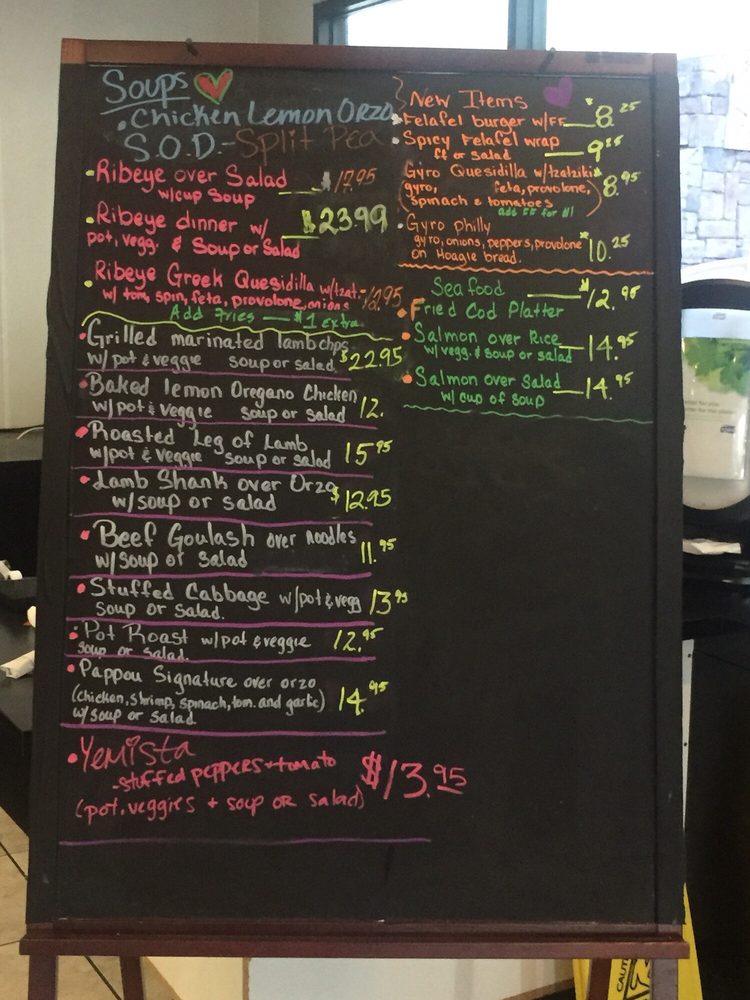 Soups
• Chicken Lemon Orzo
S.O.D - Split Pea
• Ribeye over Salad $17.95
w/cup Soup
• Ribeye dinner w/ $23.99
pot, vegg. & Soup or Salad
• Ribeye Greek Quesidilla w/tzat.
w/ tom, spin, feta, provolone, onions 12.95
Add Fries — $1 extra
• Grilled marinated lamb chps
w/pot & veggie soup or salad $22.95
• Baked lemon Oregano Chicken
w/pot & veggie soup or salad 12.
• Roasted Leg of Lamb
w/pot & veggie soup or salad 15.95
• Lamb Shank over Orzo
w/soup or salad $12.95
• Beef Goulash over noodles
w/soup or salad 11.95
• Stuffed Cabbage w/pot & vegg 13.95
soup or salad.
• Pot Roast w/pot & veggie 12.95
soup or salad.
• Pappou Signature over orzo
(chicken, shrimp, spinach, tom. and garlic) 14.95
w/soup or salad
• Yemista
- stuffed peppers + tomato $13.95
(pot, veggies + soup or salad)
New Items
• Felafel burger w/FF $8.25
• Spicy Felafel wrap
ff or salad 9.25
Gyro Quesidilla w/tzatziki
gyro, feta, provolone, $8.95
(spinach & tomatoes)
add FF for $1
• Gyro philly
gyro, onions, peppers, provolone $10.25
on Hoagie bread.
Seafood $12.95
• Fried Cod Platter
• Salmon over Rice 14.95
w/ vegg. & soup or salad
• Salmon over Salad 14.95
w/ cup of soup
CAUT